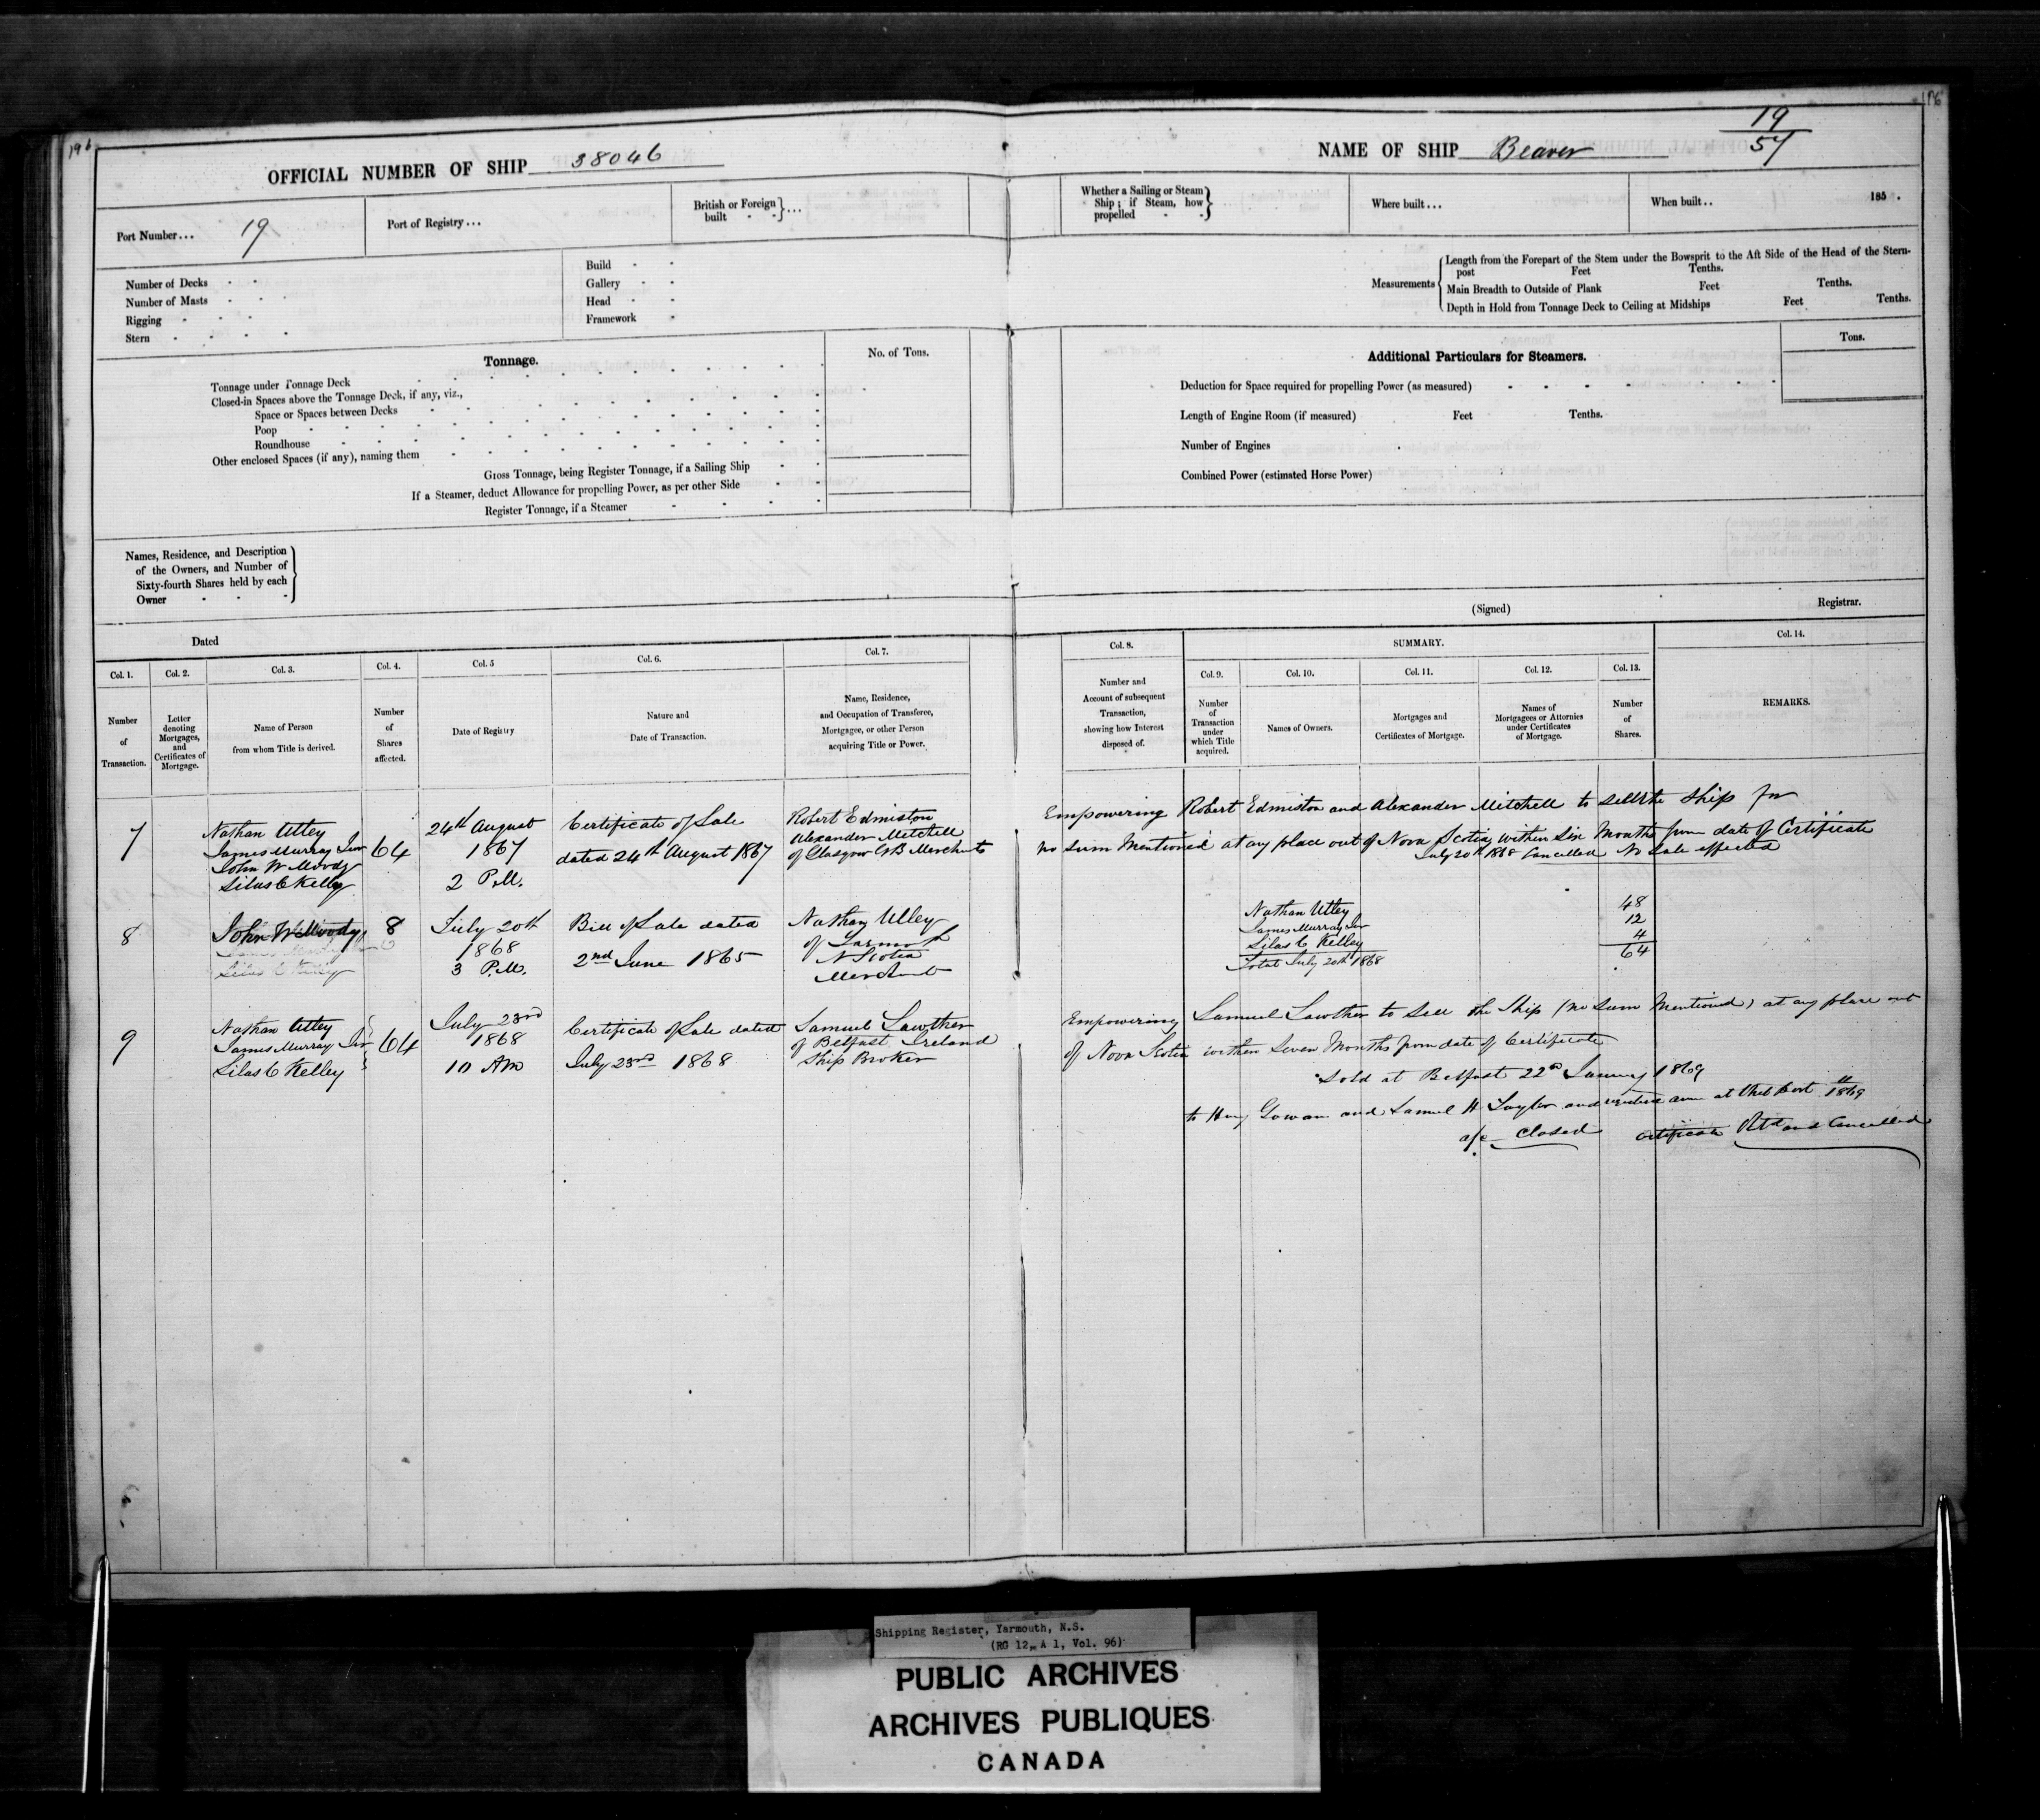 196
OFFICIAL NUMBER OF SHIP 38046
Port Number... 19
Port of Registry...
British or Foreign built
Number of Decks
Number of Masts
Rigging
Stern
Build
Gallery
Head
Framework
Tonnage.
No. of Tons.
Tonnage under Tonnage Deck
Closed-in Spaces above the Tonnage Deck, if any, viz.,
Space or Spaces between Decks
Poop
Roundhouse
Other enclosed Spaces (if any), naming them
Gross Tonnage, being Register Tonnage, if a Sailing Ship
If a Steamer, deduct Allowance for propelling Power, as per other Side
Register Tonnage, if a Steamer
Names, Residence, and Description
of the Owners, and Number of
Sixty-fourth Shares held by each
Owner
Dated
196
19
57
NAME OF SHIP Beaver
Whether a Sailing or Steam
Ship; if Steam, how
propelled
Where built...
When built.. 185 .
Measurements
Length from the Forepart of the Stem under the Bowsprit to the Aft Side of the Head of the Stern-
post Feet Tenths.
Main Breadth to Outside of Plank Feet Tenths.
Depth in Hold from Tonnage Deck to Ceiling at Midships Feet Tenths.
Additional Particulars for Steamers.
Tons.
Deduction for Space required for propelling Power (as measured)
Length of Engine Room (if measured) Feet Tenths.
Number of Engines
Combined Power (estimated Horse Power)
(Signed) Registrar.
Col. 1.
Number
of
Transaction.
Col. 2.
Letter
denoting
Mortgages,
and
Certificates of
Mortgage.
Col. 3.
Name of Person
from whom Title is derived.
Col. 4.
Number
of
Shares
affected.
Col. 5
Date of Registry
Col. 6.
Nature and
Date of Transaction.
Col. 7.
Name, Residence,
and Occupation of Transferee,
Mortgagee, or other Person
acquiring Title or Power.
Col. 8.
Number and
Account of subsequent
Transaction,
showing how Interest
disposed of.
SUMMARY.
Col. 9.
Number
of
Transaction
under
which Title
acquired.
Col. 10.
Names of Owners.
Col. 11.
Mortgages and
Certificates of Mortgage.
Col. 12.
Names of
Mortgagees or Attornies
under Certificates
of Mortgage.
Col. 13.
Number
of
Shares.
Col. 14.
REMARKS.
7
Nathan Utley
James Murray Junr
John W Moody
Silas C Kelley
64
24th August
1867
2 P.M.
Certificate of Sale
dated 24th August 1867
Robert Edmiston
Alexander Mitchell
of Glasgow GB Merchants
Empowering Robert Edmiston and Alexander Mitchell to sell the Ship for
no sum Mentioned at any place out of Nova Scotia within Six Months from date of Certificate
July 20th 1868 Cancelled No Sale effected
8
John W Moody
Silas C Kelley
8
July 20th
1868
3 P.M.
Bill of Sale dated
2nd June 1865
Nathan Utley
of Yarmouth
N Scotia
Merchant
Nathan Utley 48
James Murray Junr 12
Silas C Kelley 4
Total July 20th 1868 64
9
Nathan Utley
James Murray Junr
Silas C Kelley
64
July 23rd
1868
10 AM
Certificate of Sale dated
July 23rd 1868
Samuel Lawther
of Belfast Ireland
Ship Broker
Empowering Samuel Lawther to sell the Ship (no Sum Mentioned) at any place out
of Nova Scotia within Seven Months from date of Certificate
Sold at Belfast 22d January 1869
to Gowan and Samuel H Taylor and anew at that Port 1869
a/c closed Certificate Retd and Cancelled
Shipping Register, Yarmouth, N.S.
(RG 12, A 1, Vol. 96)
PUBLIC ARCHIVES
ARCHIVES PUBLIQUES
CANADA